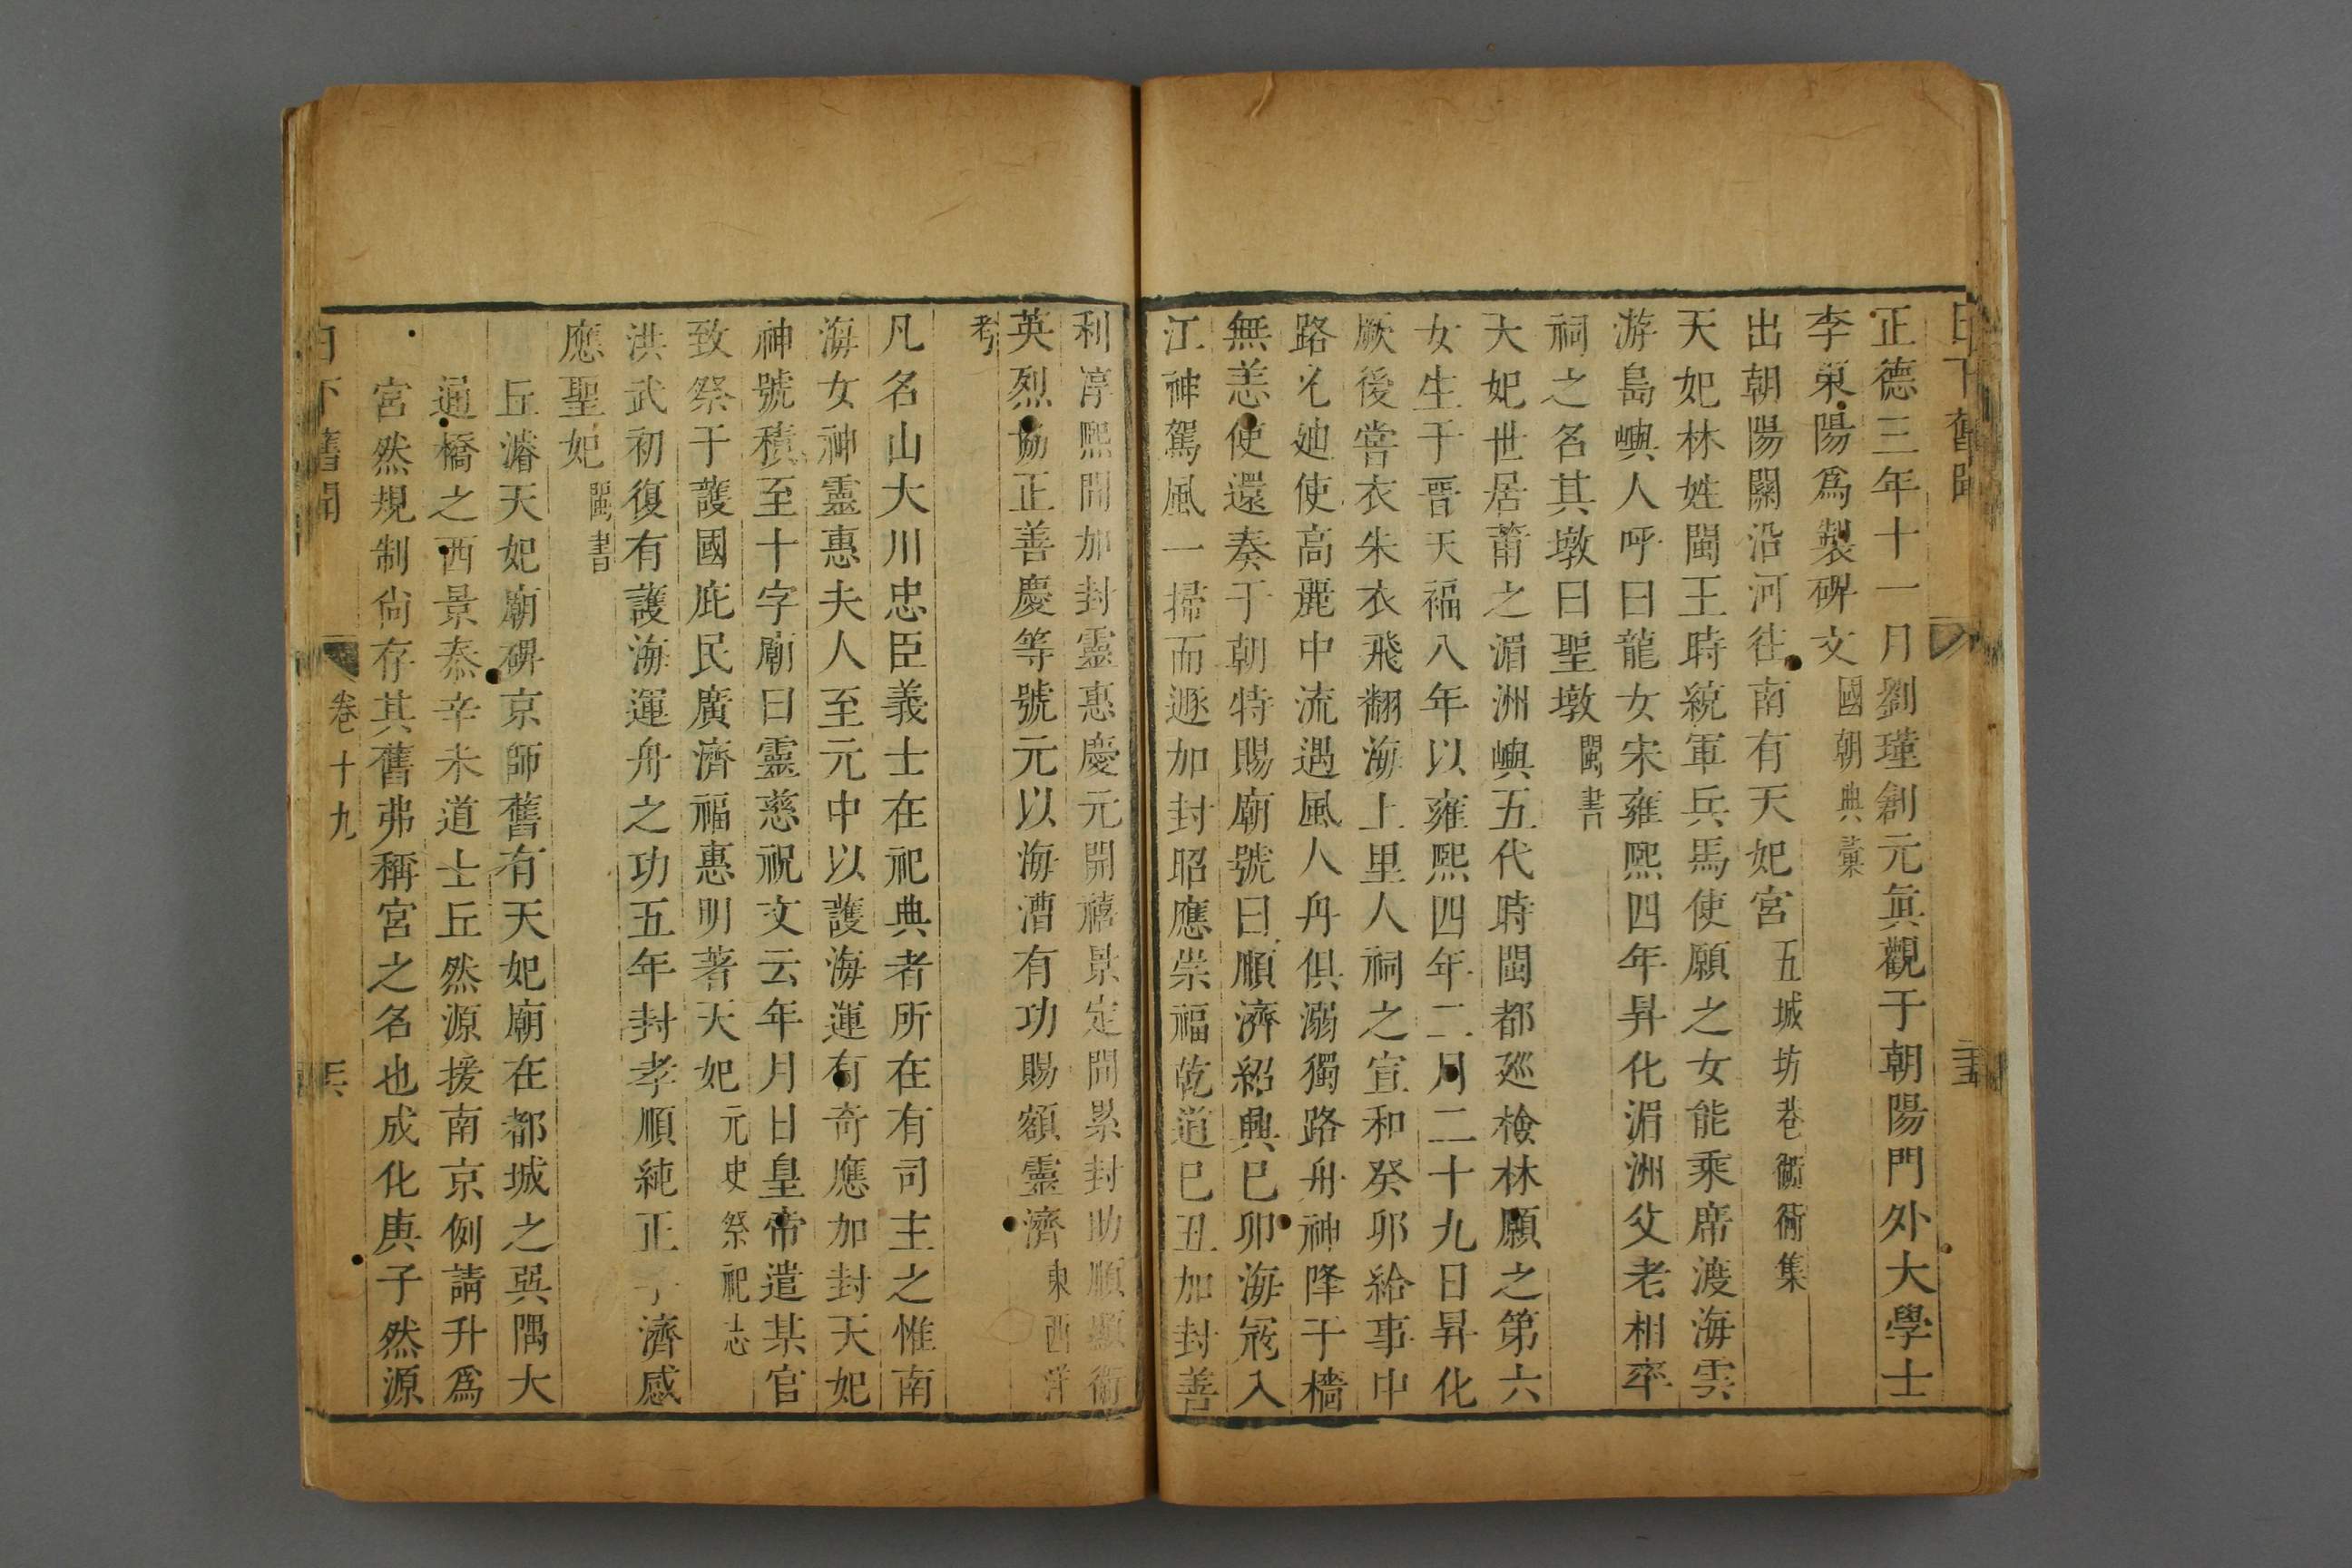 日下舊聞
正德三年十一月劉瑾創元眞觀于朝陽門外大學士
李東陽爲製碑文國朝典彙
出朝陽關沿河往南有天妃宮五城坊巷衚衕集
天妃林姓閩王時統軍兵馬使願之女能乘席渡海雲
游島嶼人呼曰龍女宋雍熙四年昇化湄洲父老相率
祠之名其墩曰聖墩閩書
大妃世居莆之湄洲嶼五代時閩都廵檢林願之第六
女生于晋天福八年以雍熙四年二月二十九日昇化
厥後嘗衣朱衣飛翻海上里人祠之宣和癸卯給事中
路允廸使高麗中流遇風人舟俱溺獨路舟神降于檣
無恙使還奏于朝特賜廟號曰順濟紹興巳卯海寇入
江神駕風一掃而遯加封昭應崇福乾道巳丑加封善
利淳熙間加封靈惠慶元開禧景定間累封助順顯衛
英烈協正善慶等號元以海漕有功賜額靈濟東西洋
考
凡名山大川忠臣義士在祀典者所在有司主之惟南
海女神靈惠夫人至元中以護海運有奇應加封天妃
神號積至十字廟曰靈慈祝文云年月日皇帝遣某官
致祭于護國庇民廣濟福惠明著天妃元史祭祀志
洪武初復有護海運舟之功五年封孝順純正孚濟感
應聖妃閩書
丘濬天妃廟碑京師舊有天妃廟在都城之巽隅大
通橋之西景泰辛未道士丘然源援南京例請升爲
宮然規制尙存其舊弗稱宮之名也成化庚子然源
日下舊聞　卷十九